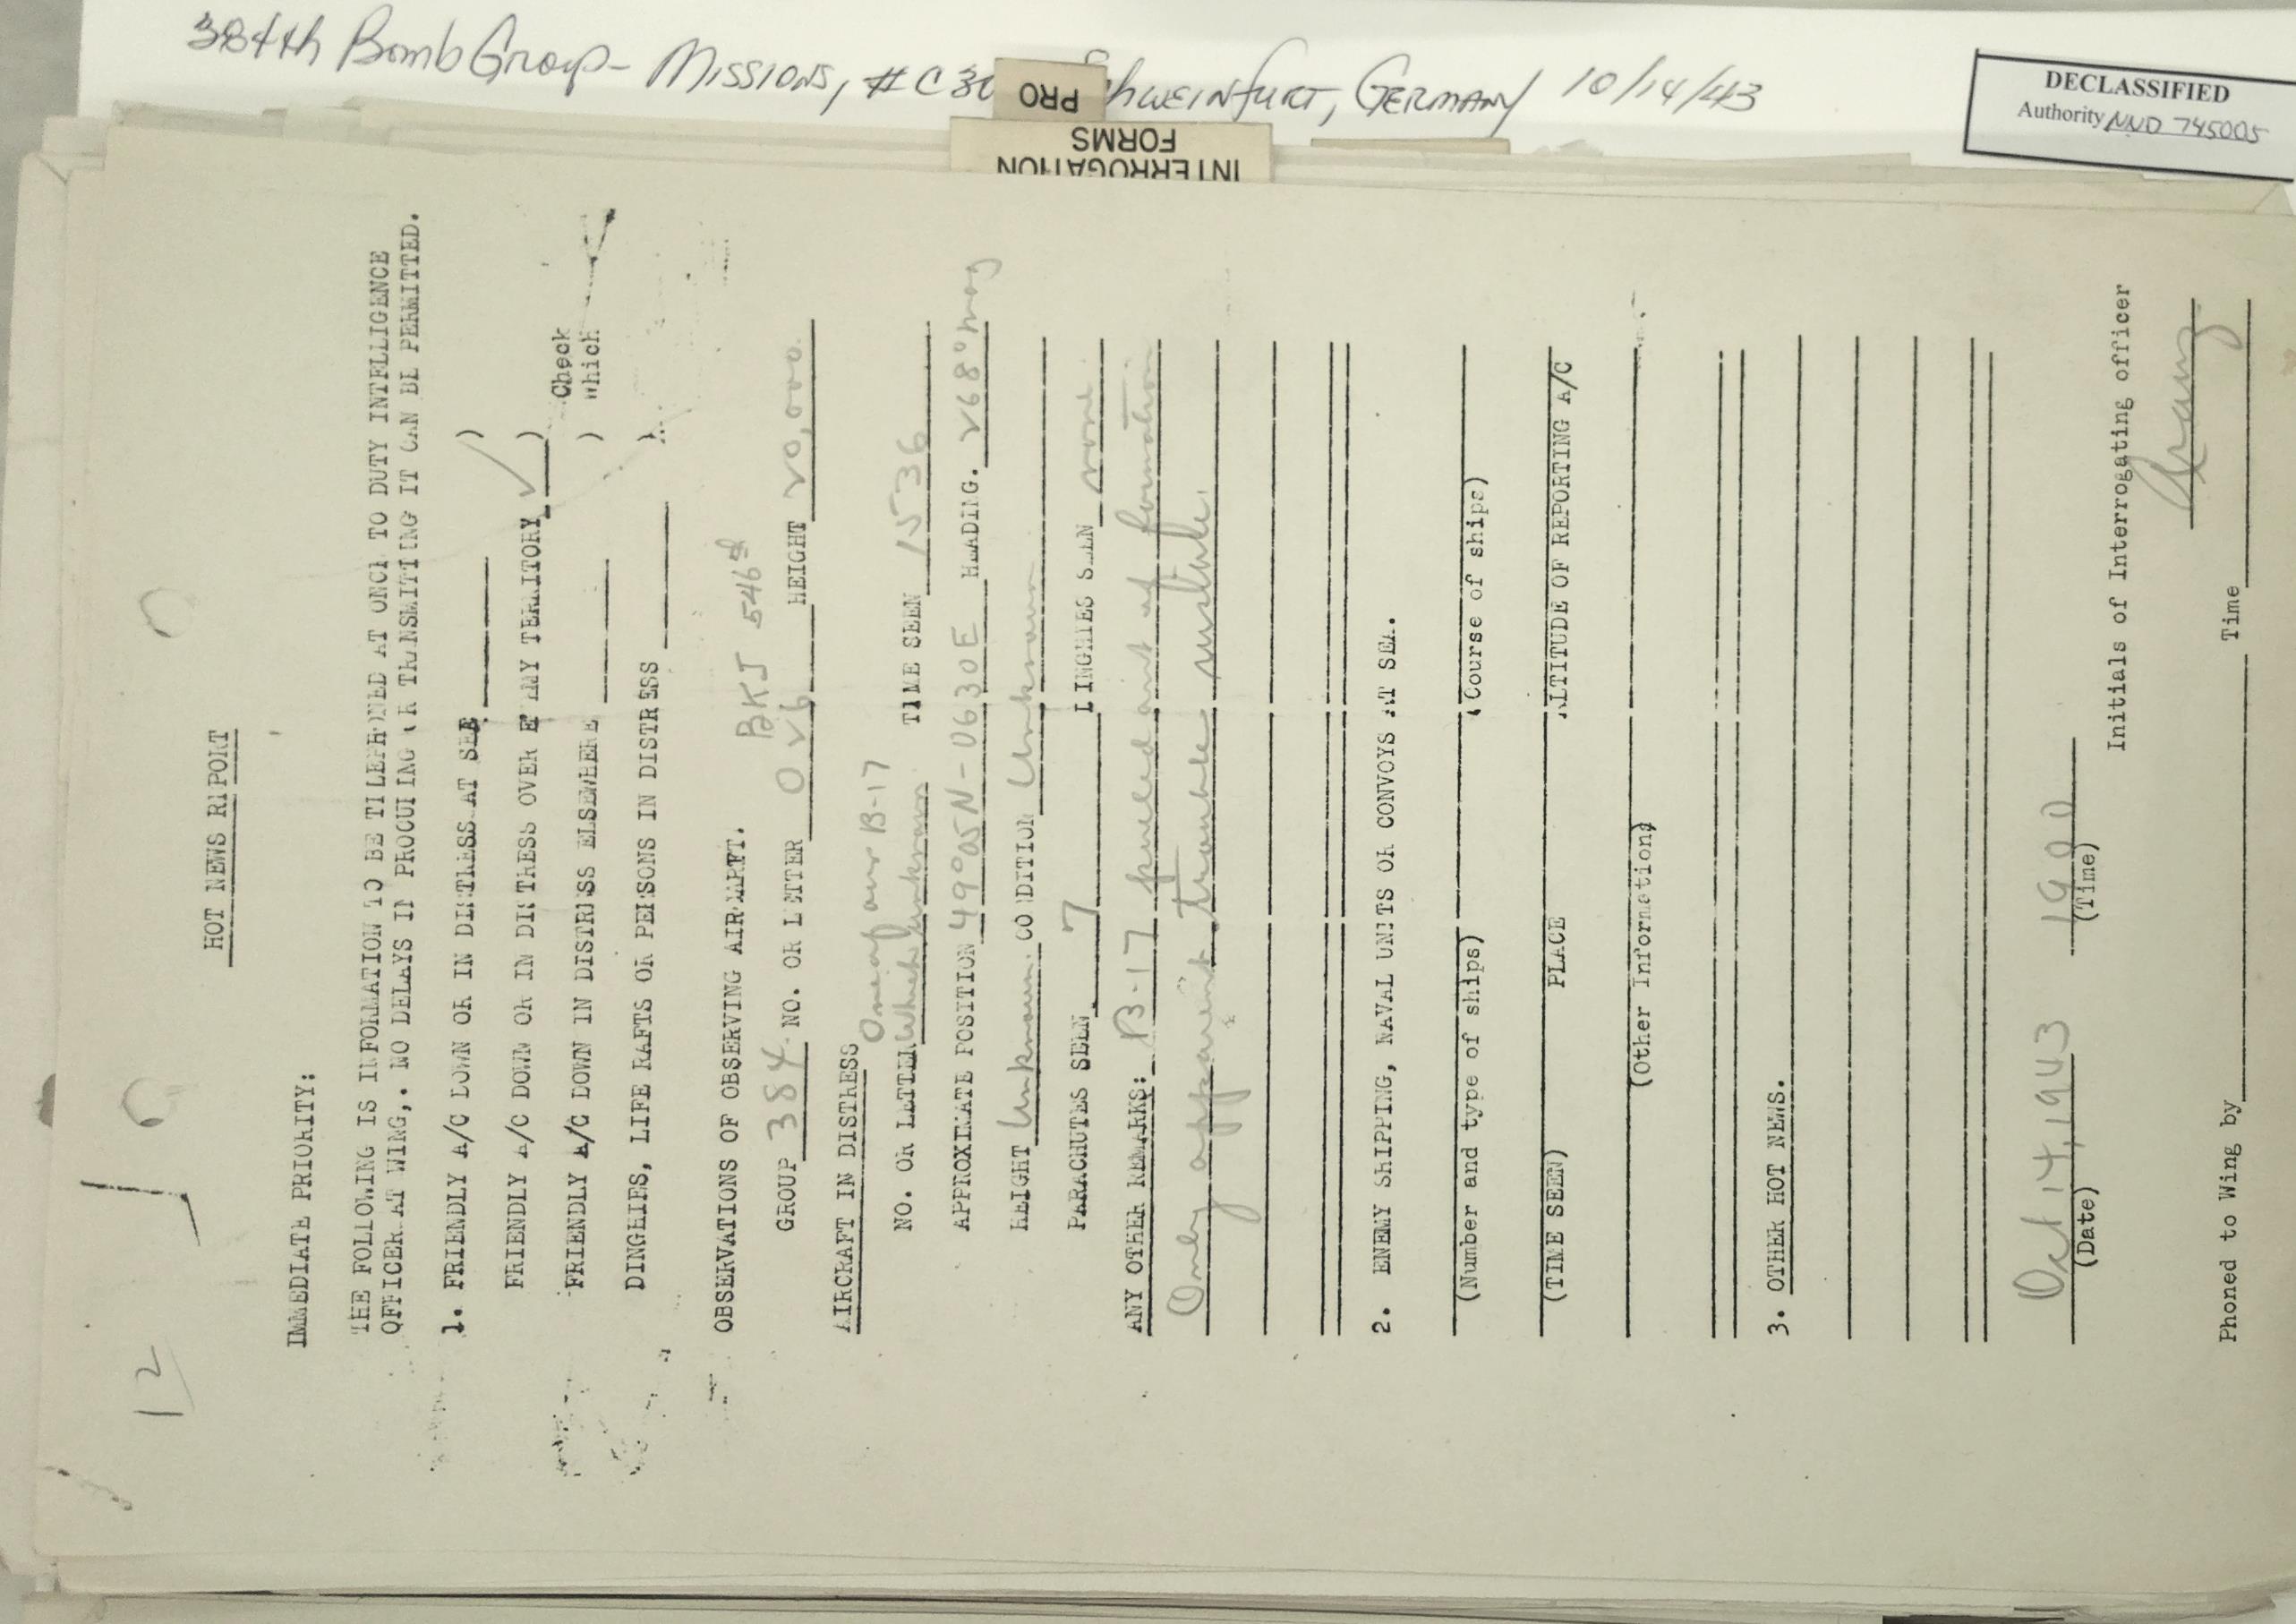 384th Bomb Group - Missions, #C30 chweinfurt, Germany 10/14/43
DECLASSIFIED
Authority NND 745005
PRO
INTERROGATION
FORMS
12
HOT NEWS REPORT
IMMEDIATE PRIORITY:
THE FOLLOWING IS INFORMATION TO BE TELEPHONED AT ONCE TO DUTY INTELLIGENCE
OFFICER AT WING,. NO DELAYS IN PROCURING OR TRANSMITTING IT CAN BE PERMITTED.
1. FRIENDLY A/C DOWN OR IN DISTRESS AT SEA )
FRIENDLY A/C DOWN OR IN DISTRESS OVER ENEMY TERRITORY ✓ ) Check
FRIENDLY A/C DOWN IN DISTRESS ELSEWHERE ) which
DINGHIES, LIFE RAFTS OR PERSONS IN DISTRESS )
OBSERVATIONS OF OBSERVING AIRCRAFT. BKJ 546th
GROUP 384 NO. OR LETTER 026 HEIGHT 20,000
AIRCRAFT IN DISTRESS One of our B-17
NO. OR LETTER unknown TIME SEEN 1536
APPROXIMATE POSITION 49°05N-0630E HEADING. 268° mag
HEIGHT Unknown. CONDITION Unknown
PARACHUTES SEEN 7 DINGHIES SEEN none.
ANY OTHER REMARKS: B-17 pulled out of formation.
Only apparent trouble
2. ENEMY SHIPPING, NAVAL UNITS OR CONVOYS AT SEA.
(Number and type of ships) (Course of ships)
(TIME SEEN) PLACE ALTITUDE OF REPORTING A/C
(Other Information)
3. OTHER HOT NEWS.
Oct 14, 1943 1900
(Date) (Time)
Initials of Interrogating officer
Phoned to Wing by Time